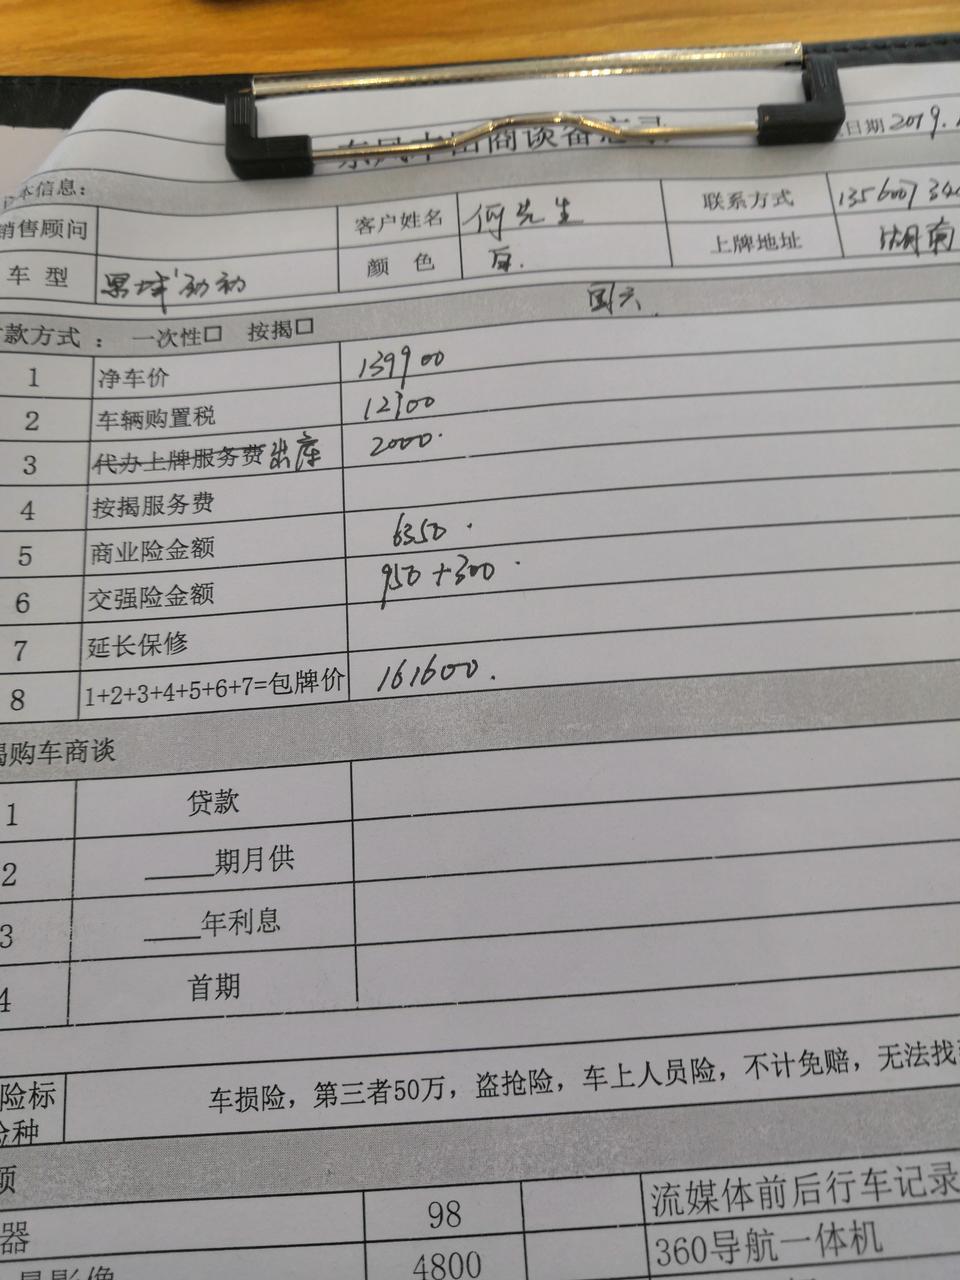 东风本田商谈备忘录
日期 2019.
本信息：
销售顾问 客户姓名 何先生 联系方式 1356007340
车型 颜色 上牌地址 湖南
国六
款方式： 一次性□ 按揭□
1 净车价 139900
2 车辆购置税 12300
3 代办上牌服务费 出库 2000.
4 按揭服务费
5 商业险金额 6350.
6 交强险金额 950+300.
7 延长保修
8 1+2+3+4+5+6+7=包牌价 161600.
揭购车商谈
1 贷款
2 ____期月供
3 ____年利息
4 首期
险标
险种
车损险，第三者50万，盗抢险，车上人员险，不计免赔，无法找到
项
器 98 流媒体前后行车记录
景影像 4800 360导航一体机